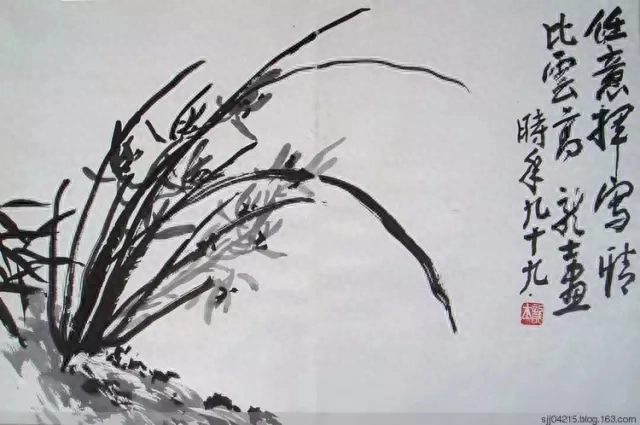 任意揮写情
比雲高 畫
時年九十九
sjj04215.blog.163.com